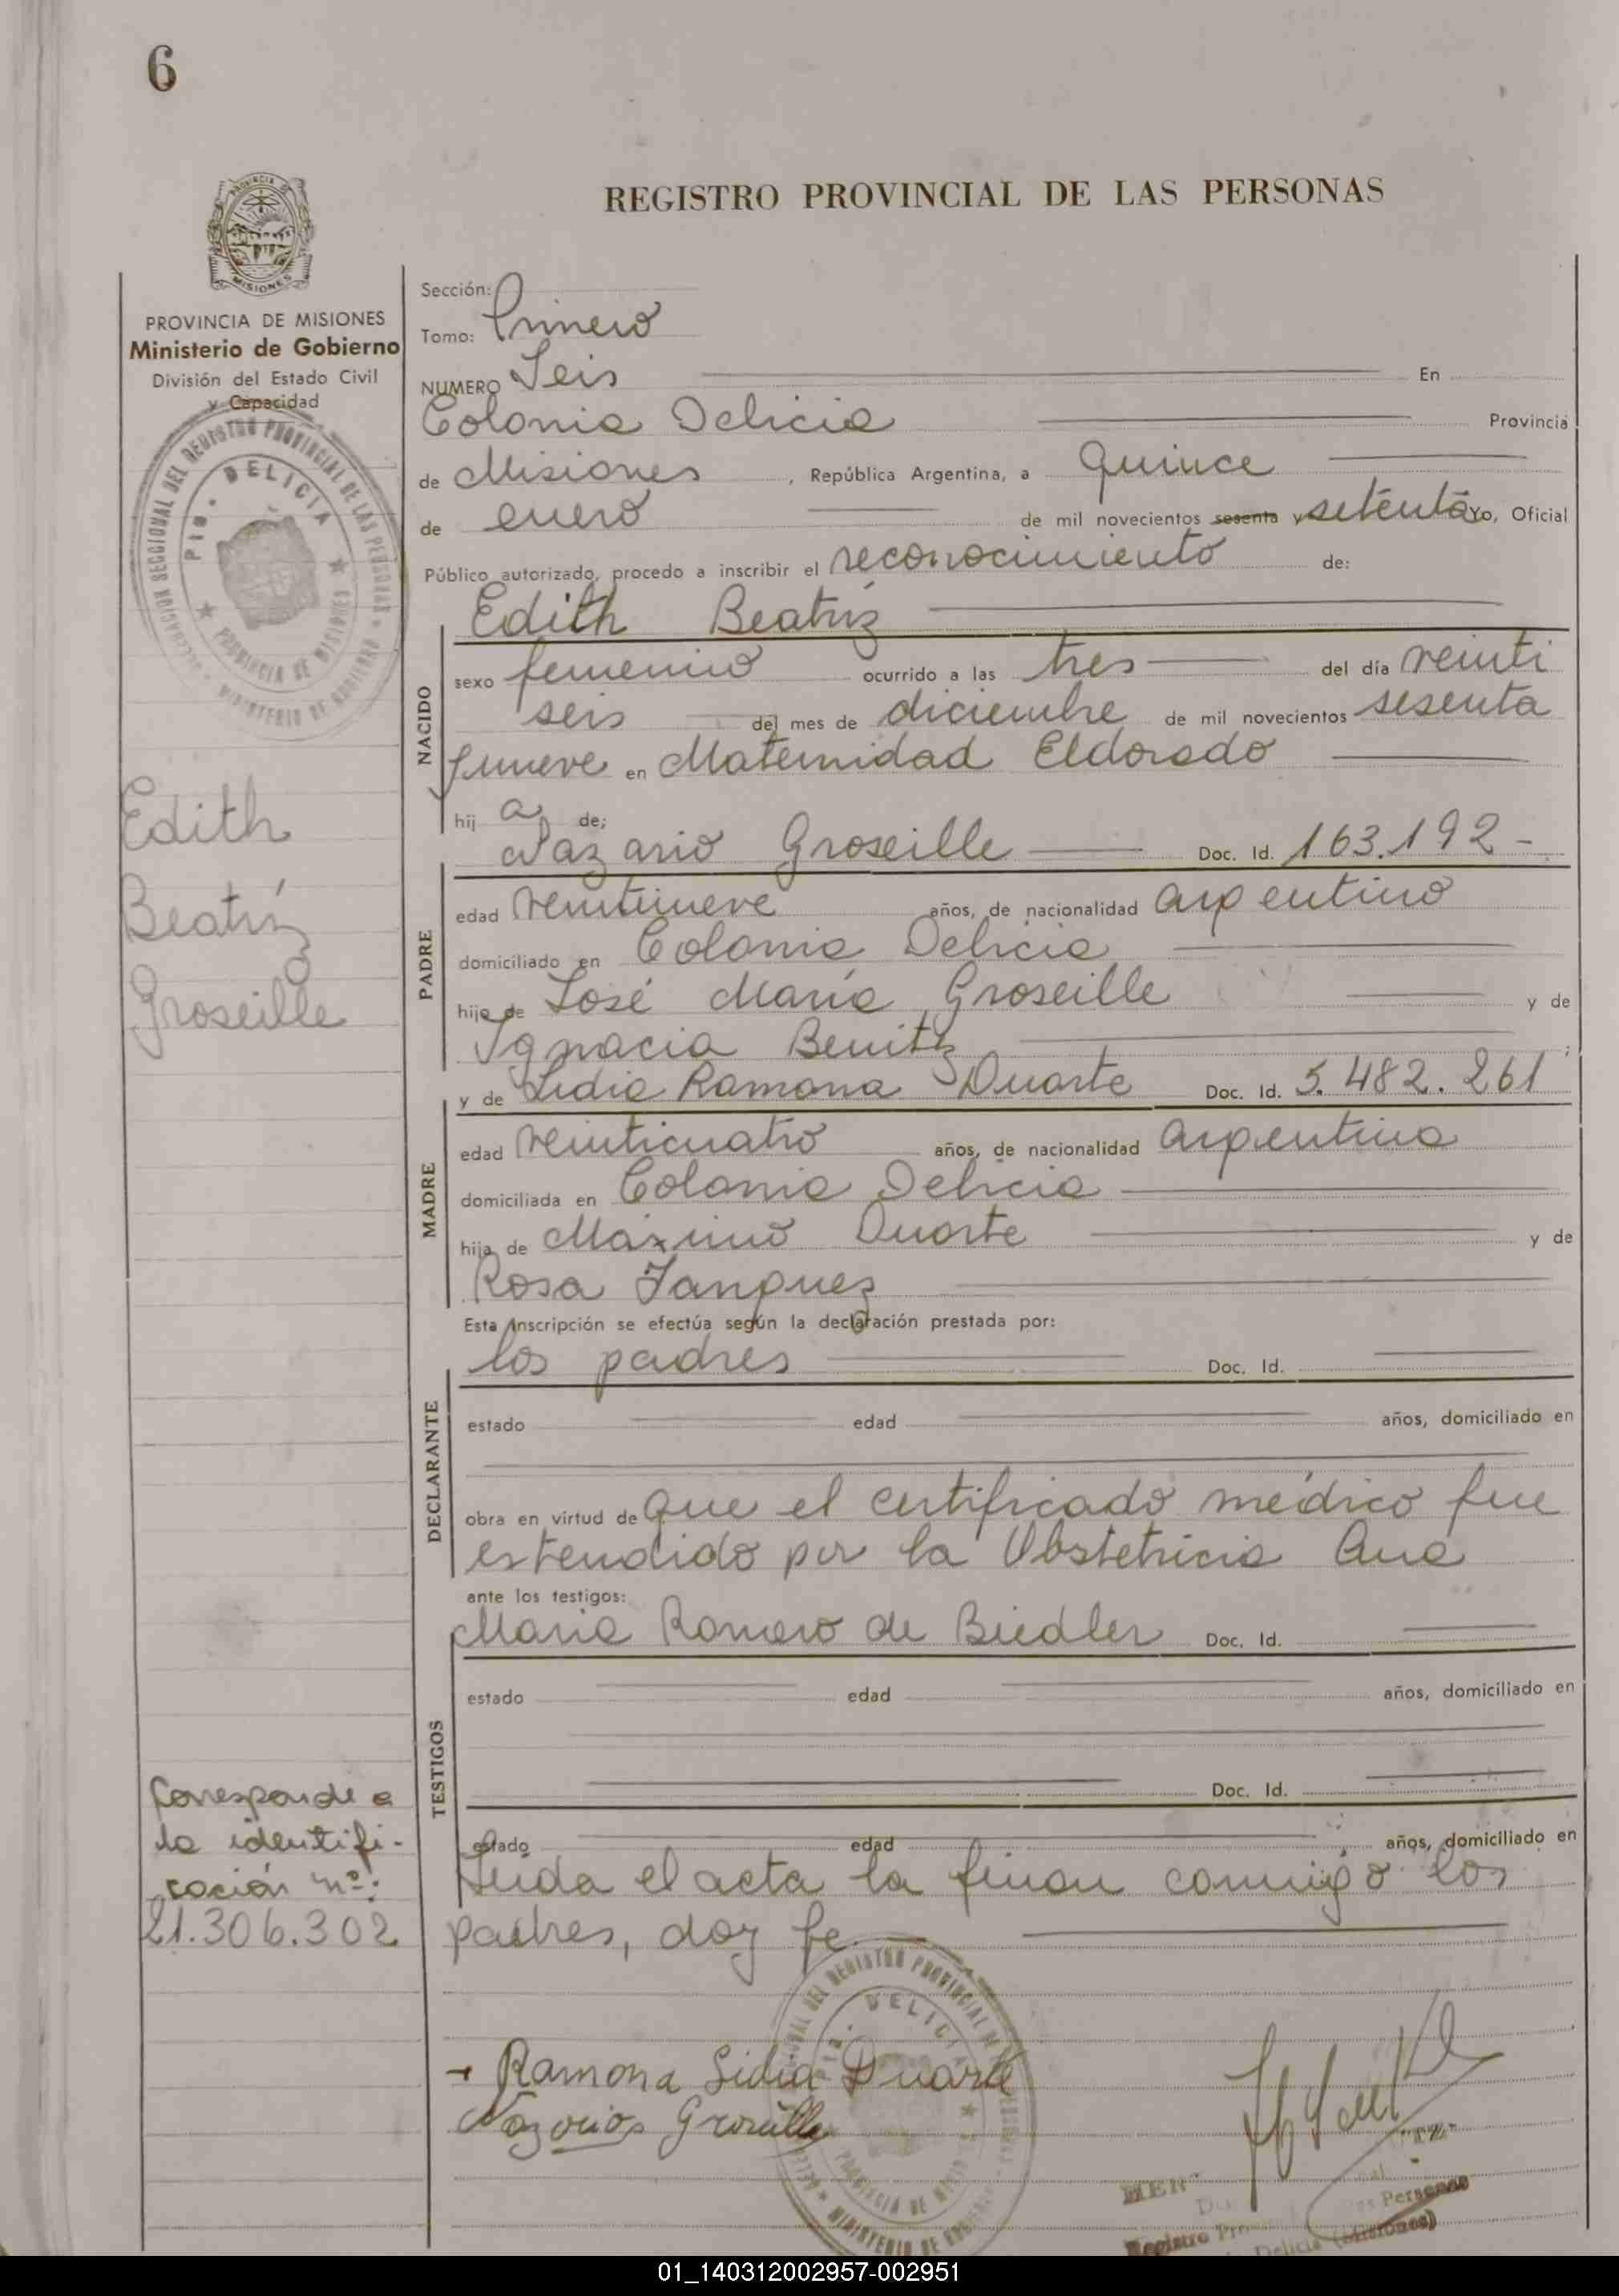 6
REGISTRO PROVINCIAL DE LAS PERSONAS
MISIONES
PROVINCIA DE MISIONES
Ministerio de Gobierno
División del Estado Civil
y Capacidad
Edith
Beatríz
Groseille
Corresponde a
la identifi-
cación nº:
21.306.302
Sección:
Tomo: Primero
NUMERO Seis En
Colonia Delicia Provincia
de Misiones, República Argentina, a quince
de enero de mil novecientos sesenta y setenta Yo, Oficial
Público autorizado, procedo a inscribir el reconocimiento de:
Edith Beatríz
NACIDO
sexo femenino ocurrido a las tres del día veinti
seis del mes de diciembre de mil novecientos sesenta
y nueve en Maternidad Eldorado
hij a de;
Nazario Groseille Doc. Id. 163.192-
PADRE
edad veintinueve años, de nacionalidad argentino
domiciliado en Colonia Delicia
hijo de José María Groseille y de
Ignacia Benitz;
y de Lidia Ramona Duarte Doc. Id. 5.482.261
MADRE
edad veinticuatro años, de nacionalidad argentina
domiciliada en Colonia Delicia
hija de Máximo Duarte y de
Rosa
Esta inscripción se efectúa según la declaración prestada por:
los padres Doc. Id.
DECLARANTE
estado edad años, domiciliado en
obra en virtud de que el certificado médico fue
estendido por la Obstetricia Ana
ante los testigos:
Maria Romero de Biedler Doc. Id.
TESTIGOS
estado edad años, domiciliado en
Doc. Id.
estado edad años, domiciliado en
Leida el acta la firman conmigo los
padres, doy fe.
Ramona Lidia Duarte
Nazarios Groseille
01_140312002957-002951